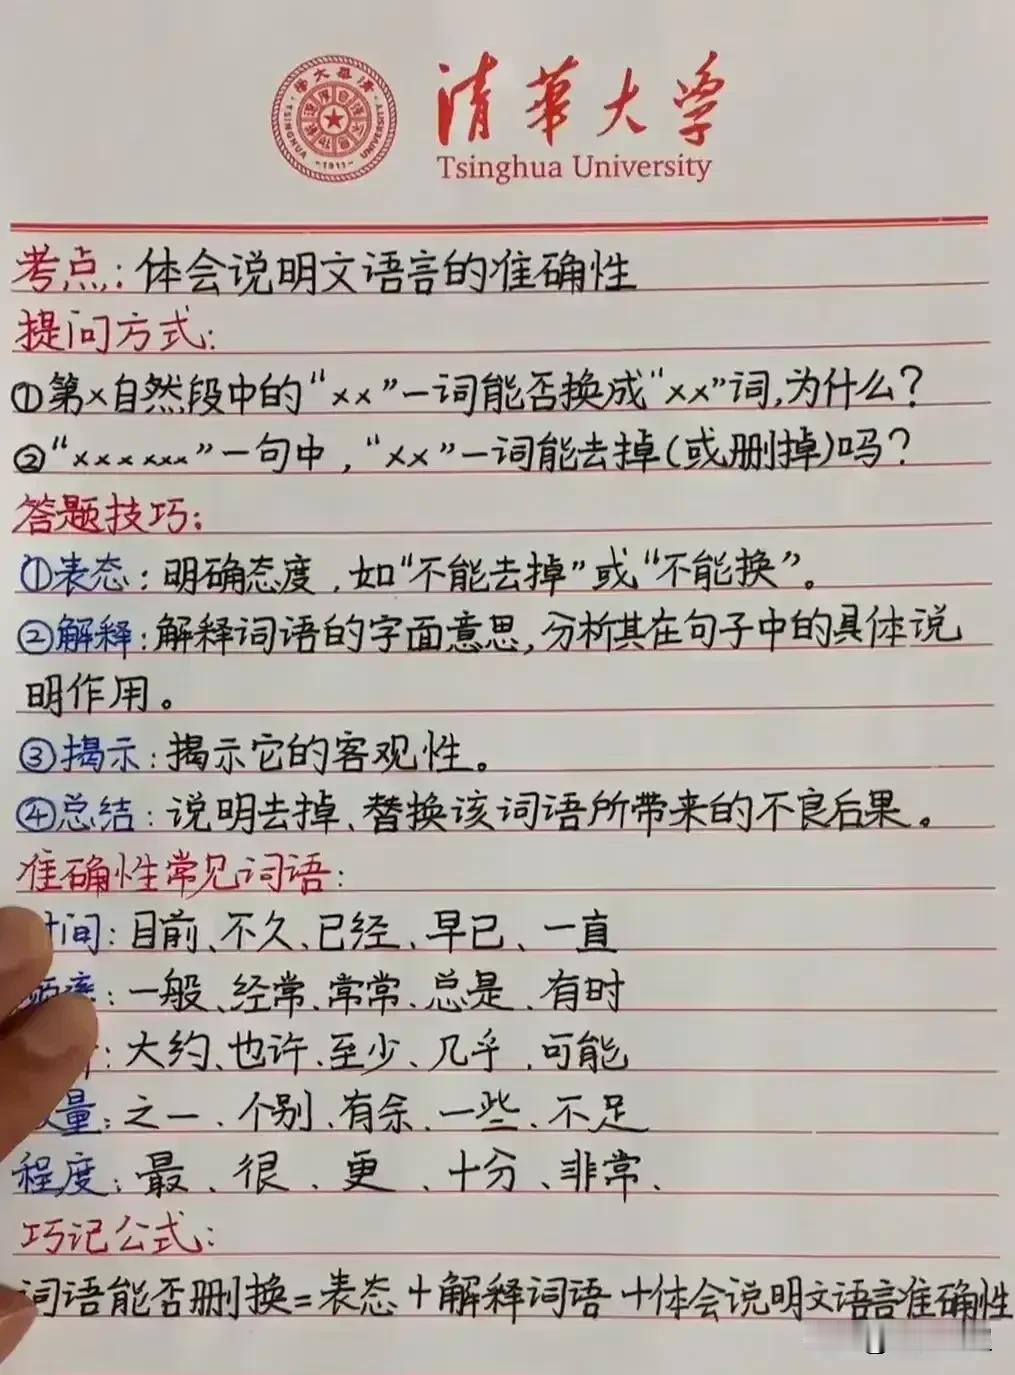 清華大学
Tsinghua University
TSINGHUA UNIVERSITY
-1911-
考点:体会说明文语言的准确性
提问方式:
①第×自然段中的“××”一词能否换成“××”词,为什么?
②“××××××”一句中,“××”一词能去掉(或删掉)吗?
答题技巧:
①表态:明确态度,如“不能去掉”或“不能换”。
②解释:解释词语的字面意思,分析其在句子中的具体说
明作用。
③揭示:揭示它的客观性。
④总结:说明去掉、替换该词语所带来的不良后果。
准确性常见词语:
时间:目前、不久、已经、早已、一直
频率:一般、经常、常常、总是、有时
:大约、也许、至少、几乎、可能
数量:之一、个别、有余、一些、不足
程度:最、很、更、十分、非常、
巧记公式:
词语能否删换=表态+解释词语+体会说明文语言准确性